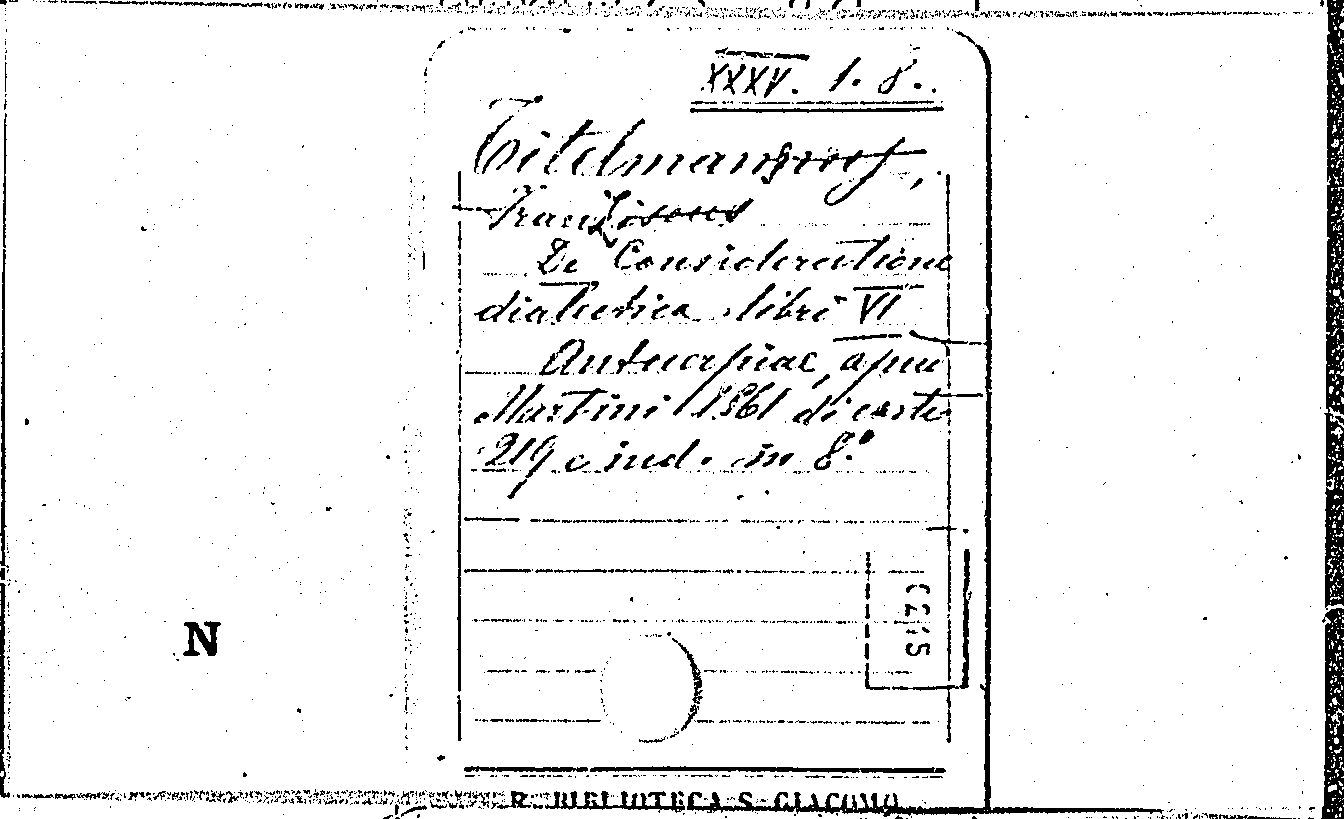 XXXV. 1. 8.
Titelmannos,
Franciscus
De Consideratione
dialectica libri VI
Antuerpiae, apud
Martini 1561 di carte
219 e ind. in 8.°
C2115
N
R. BIBLIOTECA S. GIACOMO